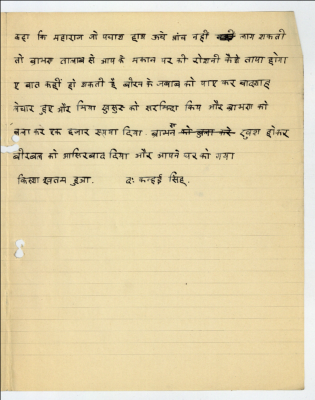 कहा कि महाराज जो पचाश हाथ ऊचे आंच नही लाग शकती
तो बाभण तालाव से आप के मकान पर की रोशनी कैसे तापा होगा
ए बात कहीं हो शकती है बीरबल के जबाब को पाए कर बादशाह
बेचार हुए और मिया खुसुरु को सरमिंदा किय और बाभण को
बला कर एक हजार रूपया दिया. बाभन खुश होकर
बीरबल को आसिरबाद दिया और आपने घर को गया
किस्सा खतम हुआ. दः कन्हई सिंह.